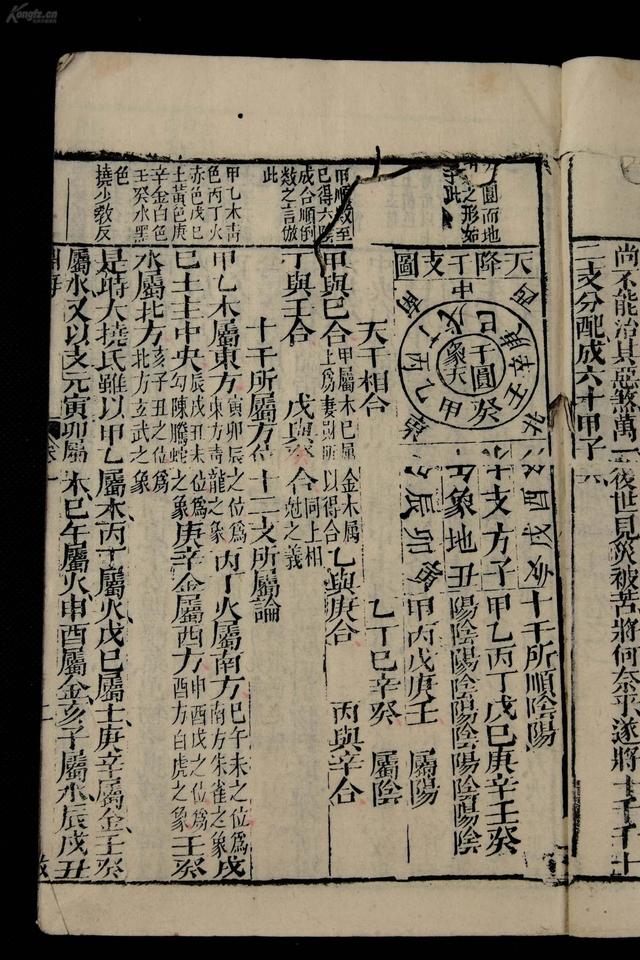 尚不能治其惡煞萬一後世見災被苦將何奈乎遂將十干十
二支分配成六十甲子
圓而地
之形如
此
甲順數至
巳得六數
成合順倒
數之言倣
此
甲乙木青
色丙丁火
赤色戊己
土黃色庚
辛金白色
壬癸水黑
色
撓少敎反
天降干支圖
干圓
象天
中
南
西
北
東
甲
乙
丙
丁
戊
巳
庚
辛
壬
癸
十支方子
象地丑
卯
辰
酉
戌
十干所順陰陽
甲乙丙丁戊巳庚辛壬癸
陽陰陽陰陽陰陽陰陽陰
甲丙戊庚壬 屬陽
乙丁巳辛癸 屬陰
天干相合
甲與巳合 甲屬木巳屬土爲妻財所以得合 金木
乙與庚合
丙與辛合
丁與壬合 戊與癸合 同上相尅之義
十干所屬方位 十二支所屬論
甲乙木屬東方 寅卯辰之位爲東方靑龍之象 丙丁火屬南方 巳午未之位爲南方朱雀之象 戊
巳土主中央 辰戌丑未位爲勾陳螣蛇之象 庚辛金屬西方 申酉戌之位爲西方白虎之象 壬癸
水屬北方 亥子丑之位爲北方玄武之象
是時大撓氏雖以甲乙屬木丙丁屬火戊巳屬土庚辛屬金壬癸
屬水又以支元寅卯屬木巳午屬火申酉屬金亥子屬水辰戌丑
淵海
卷一
二
Kongfz.cn